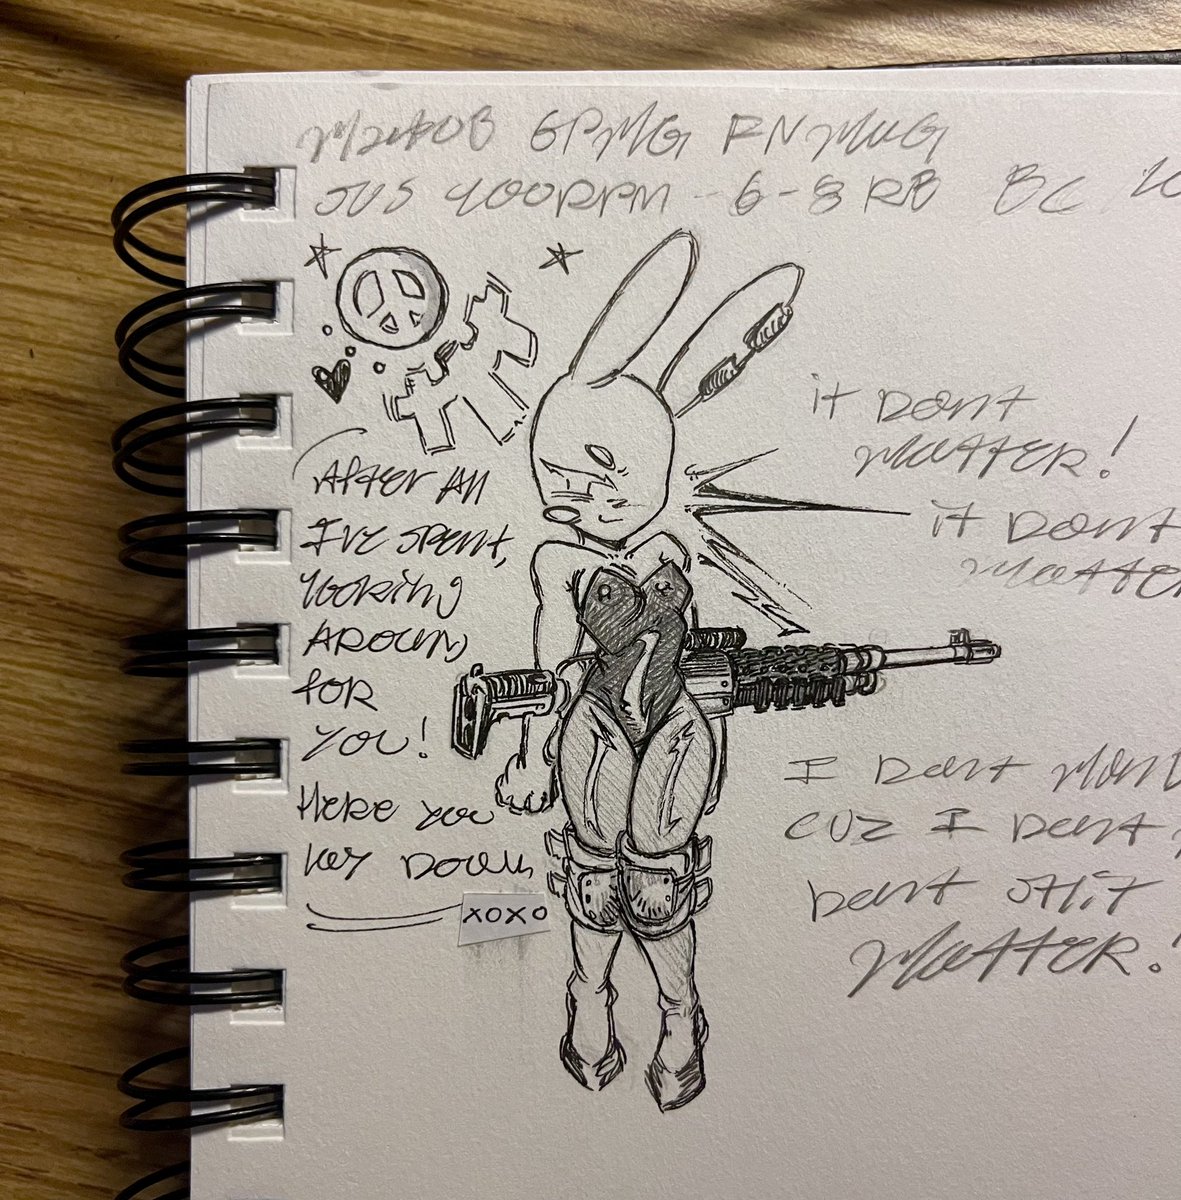 M240B GPMG FN MAG
JUS 400RPM - 6-8 RB BC
After All
I've spent,
looking
Around
for
you!
Here you
lay Down
xoxo
it Dont
matter!
it Dont
matter
I Dont
cuz I Dont
Dont shit
matter!